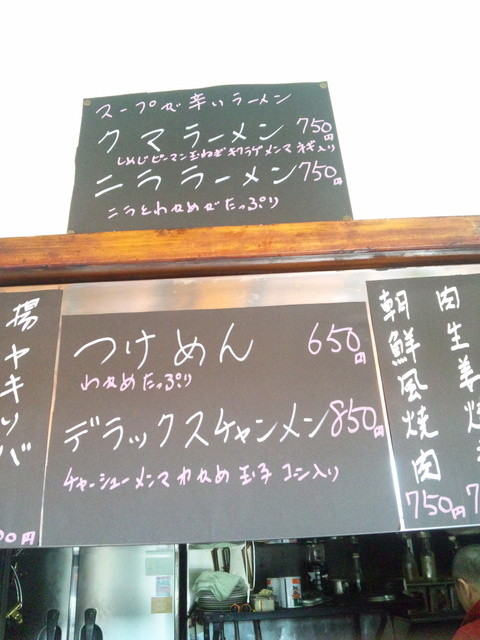 スープが辛いラーメン
クマラーメン 750円
しめじピーマン玉ねぎキクラゲメンマ ネギ入り
ニララーメン 750円
ニラとわかめがたっぷり
つけめん 650円
わかめたっぷり
デラックスチャンメン 850円
チャーシューメンマ わかめ 玉子 コーン入り
揚ヤキソバ
00円
肉生姜焼
朝鮮風焼肉
750円
7